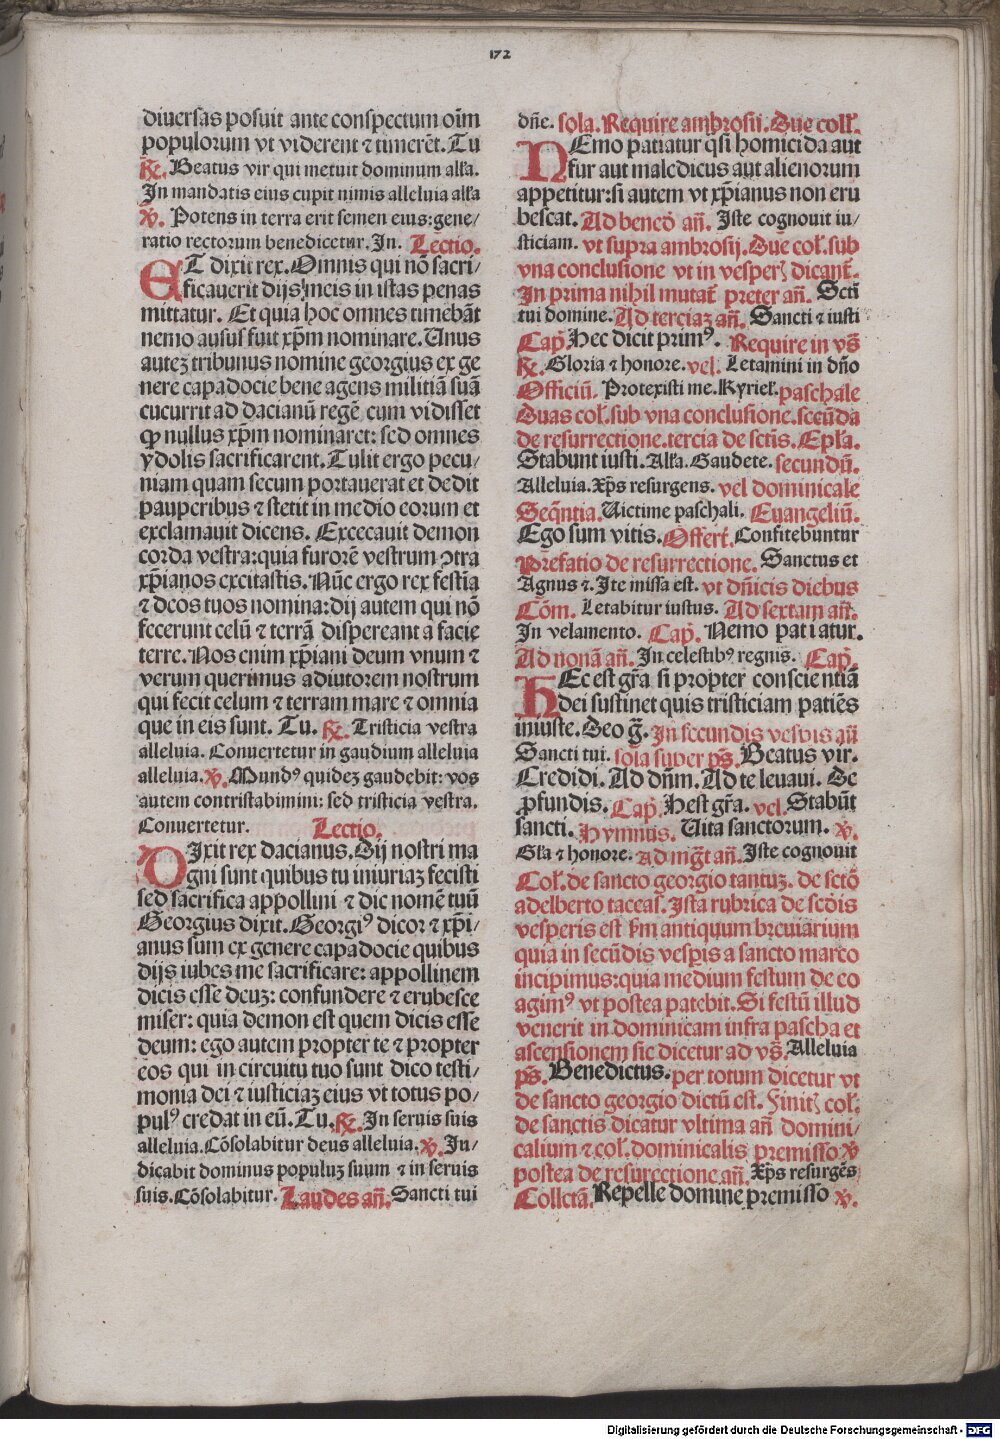 172
diuersas posuit ante conspectum oīm
populorum vt viderent ⁊ timerēt. Tu
℟. Beatus vir qui metuit dominum alła.
In mandatis eius cupit nimis alleluia alła
℣. Potens in terra erit semen eius: gene/
ratio rectorum benedicetur. In. Lectio.
ET dixit rex. Omnis qui nō sacri/
ficauerit dijs meis in istas penas
mittatur. Et quia hoc omnes timebāt
nemo ausus fuit xp̄m nominare. Unus
autez tribunus nomine georgius ex ge
nere capadocie bene agens militiā suā
cucurrit ad dacianū regē cum vidisset
ꝙ nullus xp̄m nominaret: sed omnes
ydolis sacrificarent. Tulit ergo pecu/
niam quam secum portauerat et dedit
pauperibus ⁊ stetit in medio eorum et
exclamauit dicens. Excecauit demon
corda vestra: quia furorē vestrum ꝯtra
xp̄ianos excitastis. Nūc ergo rex festīa
⁊ deos tuos nomina: dij autem qui nō
fecerunt celū ⁊ terrā dispereant a facie
terre. Nos enim xp̄iani deum vnum ⁊
verum querimus adiutorem nostrum
qui fecit celum ⁊ terram mare ⁊ omnia
que in eis sunt. Tu. ℟. Tristicia vestra
alleluia. Conuertetur in gaudium alleluia
alleluia. ℣. Mundꝰ quidez gaudebit: vos
autem contristabimini: sed tristicia vestra.
Conuertetur. Lectio.
DIxit rex dacianus. Dij nostri ma
gni sunt quibus tu iniuriaz fecisti
sed sacrifica appollini ⁊ dic nomē tuū
Georgius dixit. Georgiꝰ dicor ⁊ xp̄i/
anus sum ex genere capadocie quibus
dijs iubes me sacrificare: appollinem
dicis esse deuz: confundere ⁊ erubesce
miser: quia demon est quem dicis esse
deum: ego autem propter te ⁊ propter
eos qui in circuitu tuo sunt dico testi/
monia dei ⁊ iusticiaz eius vt totus po/
pulꝰ credat in eū. Tu. ℟. In seruis suis
alleluia. Cōsolabitur deus alleluia. ℣. In/
dicabit dominus populuz suum ⁊ in seruis
suis. Cōsolabitur. Laudes an̄. Sancti tui
dn̄e. sola. Require ambrosij. Due colł.
NEmo patiatur qsi homicida aut
fur aut maledicus aut alienorum
appetitur: si autem vt xp̄ianus non eru
bescat. Ad bened̄ an̄. Iste cognouit iu/
sticiam. vt supra ambrosij. Due coł. sub
vna conclusione vt in vesperꝭ dicant̄.
In prima nihil mutat̄ preter an̄. Sctī
tui domine. Ad terciaz an̄. Sancti ⁊ iusti
Cap̄. Hec dicit primꝰ. Require in vs̄
℟. Gloria ⁊ honore. vel. Letamini in dn̄o
Officiū. Protexisti me. Kyrieł. paschale
Duas coł. sub vna conclusione. sccūda
de resurrectione. tercia de sctīs. Epła.
Stabunt iusti. Alła. Gaudete. secundū.
Alleluia. Xp̄s resurgens. vel dominicale
Seq̄ntia. Uictime paschali. Euangeliū.
Ego sum vitis. Offert̄. Confitebuntur
Prefatio de resurrectione. Sanctus et
Agnus ⁊. Ite missa est. vt dn̄icis diebus
Cōm. Letabitur iustus. Ad sextam an̄.
In velamento. Cap̄. Nemo patiatur.
Ad nonā an̄. In celestibꝰ regnis. Cap̄.
HEc est gr̄a si propter conscientiā
dei sustinet quis tristiciam patiēs
iniuste. Deo g̃. In secundis vespis an̄
Sancti tui. sola super ps̄. Beatus vir.
Credidi. Ad dn̄m. Ad te leuaui. De
ꝓfundis. Cap̄. Hest gr̄a. vel. Stabūt
sancti. Hymnus. Uita sanctorum. ℣.
Gła ⁊ honore. Ad mg̃t an̄. Iste cognouit
Coł. de sancto georgio tantuz. de sctō
adelberto taceas. Ista rubrica de scdis
vesperis est ẜm antiquum breuiarium
quia in secūdis vespis a sancto marco
incipimus: quia medium festum de eo
agimꝰ vt postea patebit. Si festū illud
venerit in dominicam infra pascha et
ascensionem sic dicetur ad vs̄. Alleluia
ps̄. Benedictus. per totum dicetur vt
de sancto georgio dictū est. Finitꝭ coł.
de sanctis dicatur vltima an̄ domini/
calium ⁊ coł. dominicalis premisso ℣
postea de resurectione an̄. Xp̄s resurgēs
Collctā. Repelle domine premisso ℣.
Digitalisierung gefördert durch die Deutsche Forschungsgemeinschaft - DFG